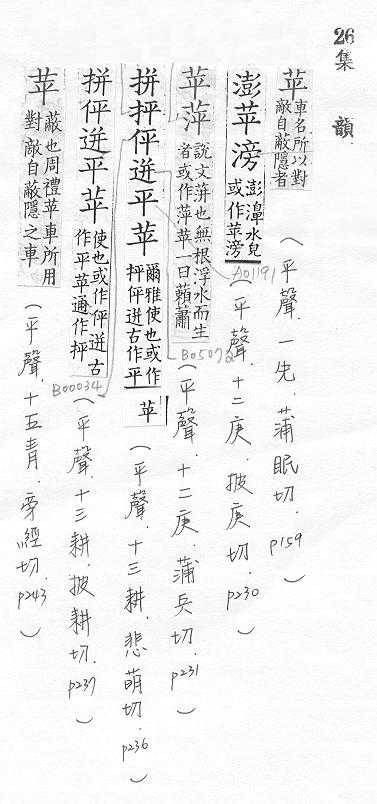 26
集韻
苹 車名所以對敵自蔽隱者(平聲.一先.蒲眠切.p159)
澎苹滂 澎濞水皃或作苹滂(平聲.十二庚.披庚切.p230)
A01191
苹萍 說文蓱也無根浮水而生者或作萍苹一曰藾蕭(平聲.十二庚.蒲兵切.p231)
B05072
拼抨伻迸平苹 爾雅使也或作抨伻迸古作平苹(平聲.十三耕.悲萌切.p236)
拼伻迸平苹 使也或作伻迸古作平苹通作抨(平聲.十三耕.披耕切.p237)
B00034
苹 蔽也周禮苹車所用對敵自蔽隱之車(平聲.十五青.旁經切.p243)